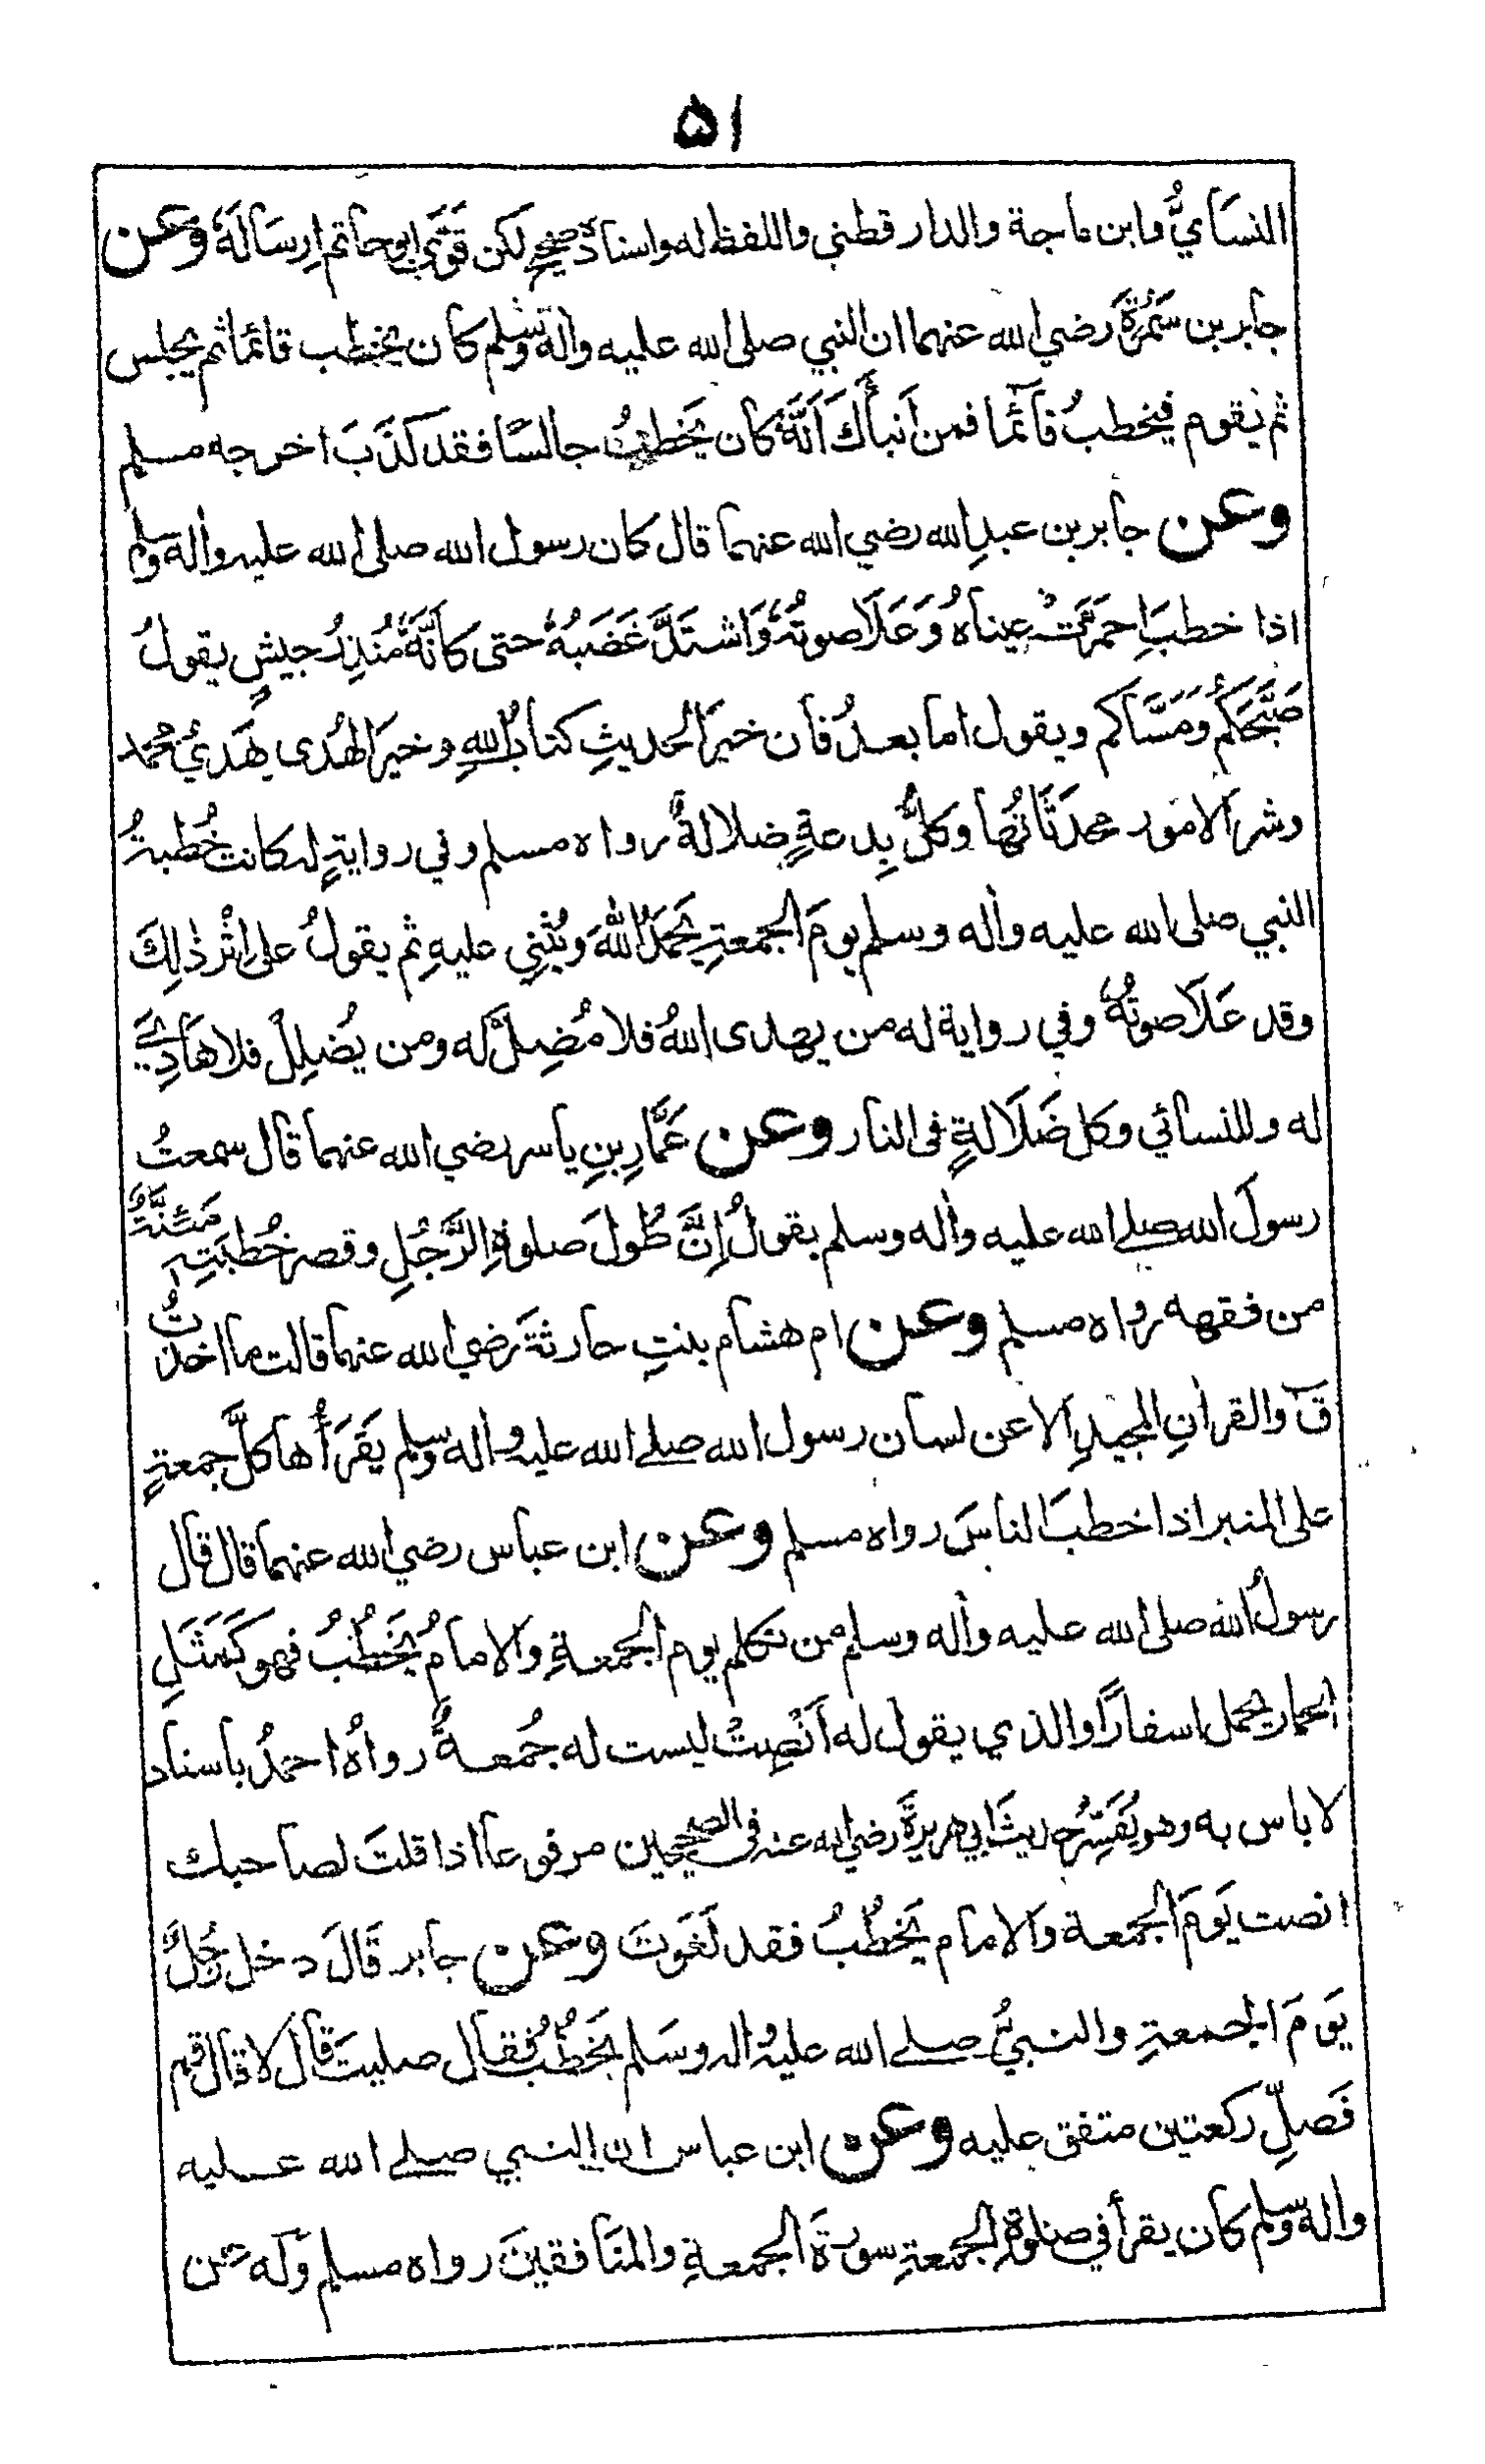 ۵۱
النسَائيُّ وابن ماجة والدارقطني واللفظ له واسناده صحيح لكن قَوّى ابو حاتم اِرسَالَهُ وعن
جابر بن سَمُرَةَ رضي الله عنهما ان النبي صلى الله عليه واله وسلم كان يخطب قائما ثم يجلس
ثم يقوم فيخطبُ قآئما فمن اَنبأَكَ اَنَّهُ كان يَخطبُ جالسًا فقد كذَبَ اخرجه مسلم
وعن جابر بن عبدِ الله رضي الله عنهما قال كان رسول الله صلى الله عليه واله وسلم
اذا خطبَ اِحمَرَّتْ عيناهُ وَعَلَا صوتُهُ وَاشتَدَّ غَضَبُهُ حتى كَانَّهُ مُنذِرُ جيشٍ يقولُ
صَبَّحَكُم وَمَسَّاكم ويقول اما بعدُ فان خيرَ الحديثِ كتابُ اللهِ وخيرَ الهُدى هَديُ محمد
وشرَ الامور محدَثَاتُها وكلُّ بِدعةٍ ضلالةٌ رواه مسلم وفي روايةٍ له كانت خُطبةُ
النبي صلى الله عليه واٰله وسلم يومَ الجمعةِ يَحمَدُ اللهَ ويُثنِي عليهِ ثم يقولُ على اِثْرِ ذٰلِكَ
وقد عَلَا صوتُهُ وفي رواية له من يهدى اللهُ فلا مُضِلَّ له ومن يُضلِلْ فلا هَادِيَ
له وللنسائي وكل ضَلَالةٍ فى النار وعن عَمَّارِ بنِ ياسر رضي الله عنهما قال سمعتُ
رسولَ الله صلے الله عليه واٰله وسلم يقولُ اِنَّ طُولَ صلوةِ الرَّجُلِ وقصر خُطبَتِهِ مَئِنَّةٌ
من فقهه رواه مسلم وعن ام هشام بنتِ حارثةَ رضي الله عنهما قالت ما اخذتُ
قٓ والقراٰنِ المجيدِ الا عن لسان رسول الله صلے الله عليه واله وسلم يَقرَأُها كلَّ جمعةٍ
على المنبر اذا خطبَ الناسَ رواه مسلم وعن ابن عباس رضي الله عنهما قال قال
رسولُ الله صلى الله عليه واٰله وسلم من تكلم يوم الجمعةِ والامامُ يَخطُبُ فهو كَمَثَلِ
الحمار يحمل اسفارًا والذي يقول له اَنْصِتْ ليست له جُمعةٌ رواهُ احمدُ باسناد
لا باس به وهو يُفَسِّرُ حديثَ ابي هريرةَ رضي الله عنه فى الصحيحين مرفوعا اذا قلتَ لصاحبك
انصت يَومَ الجمعة والامام يَخطُبُ فقد لَغَوتَ وعن جابر قَالَ دخل رَجُلٌ
يَومَ الجمعةِ والنبيُّ صلے الله عليه واله وسَلم يَخطُبُ فقال صليتَ قال لا قال قم
فَصلِّ ركعتين متفق عليه وعن ابن عباس ان النبي صلے الله عليه
واله وسلم كان يقرأ في صلوة الجمعةِ سورةَ الجمعةِ والمنَافقينَ رواه مسلم وَله عن